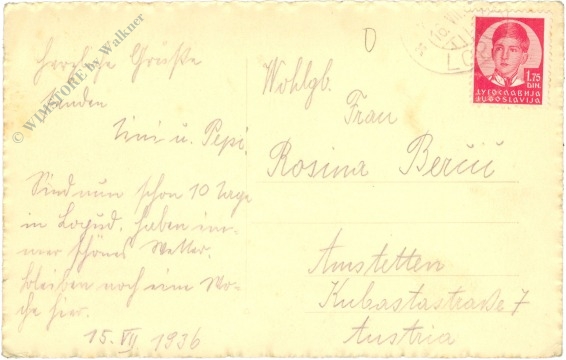 Herrliche Grüße
senden
Tini u. Pepi
Sind nun schon 10 Tage
in Lopud, haben im-
mer schönes Wetter.
bleiben noch eine Wo-
che hier.
15. VII 1936
Wohlgb.
Frau
Rosina Berčič
Amstetten
Kubastastraße 7
Austria
1.75
DIN.
ЈУГОСЛАВИЈА
JUGOSLAVIJA
© WIMSTORE by Walkner